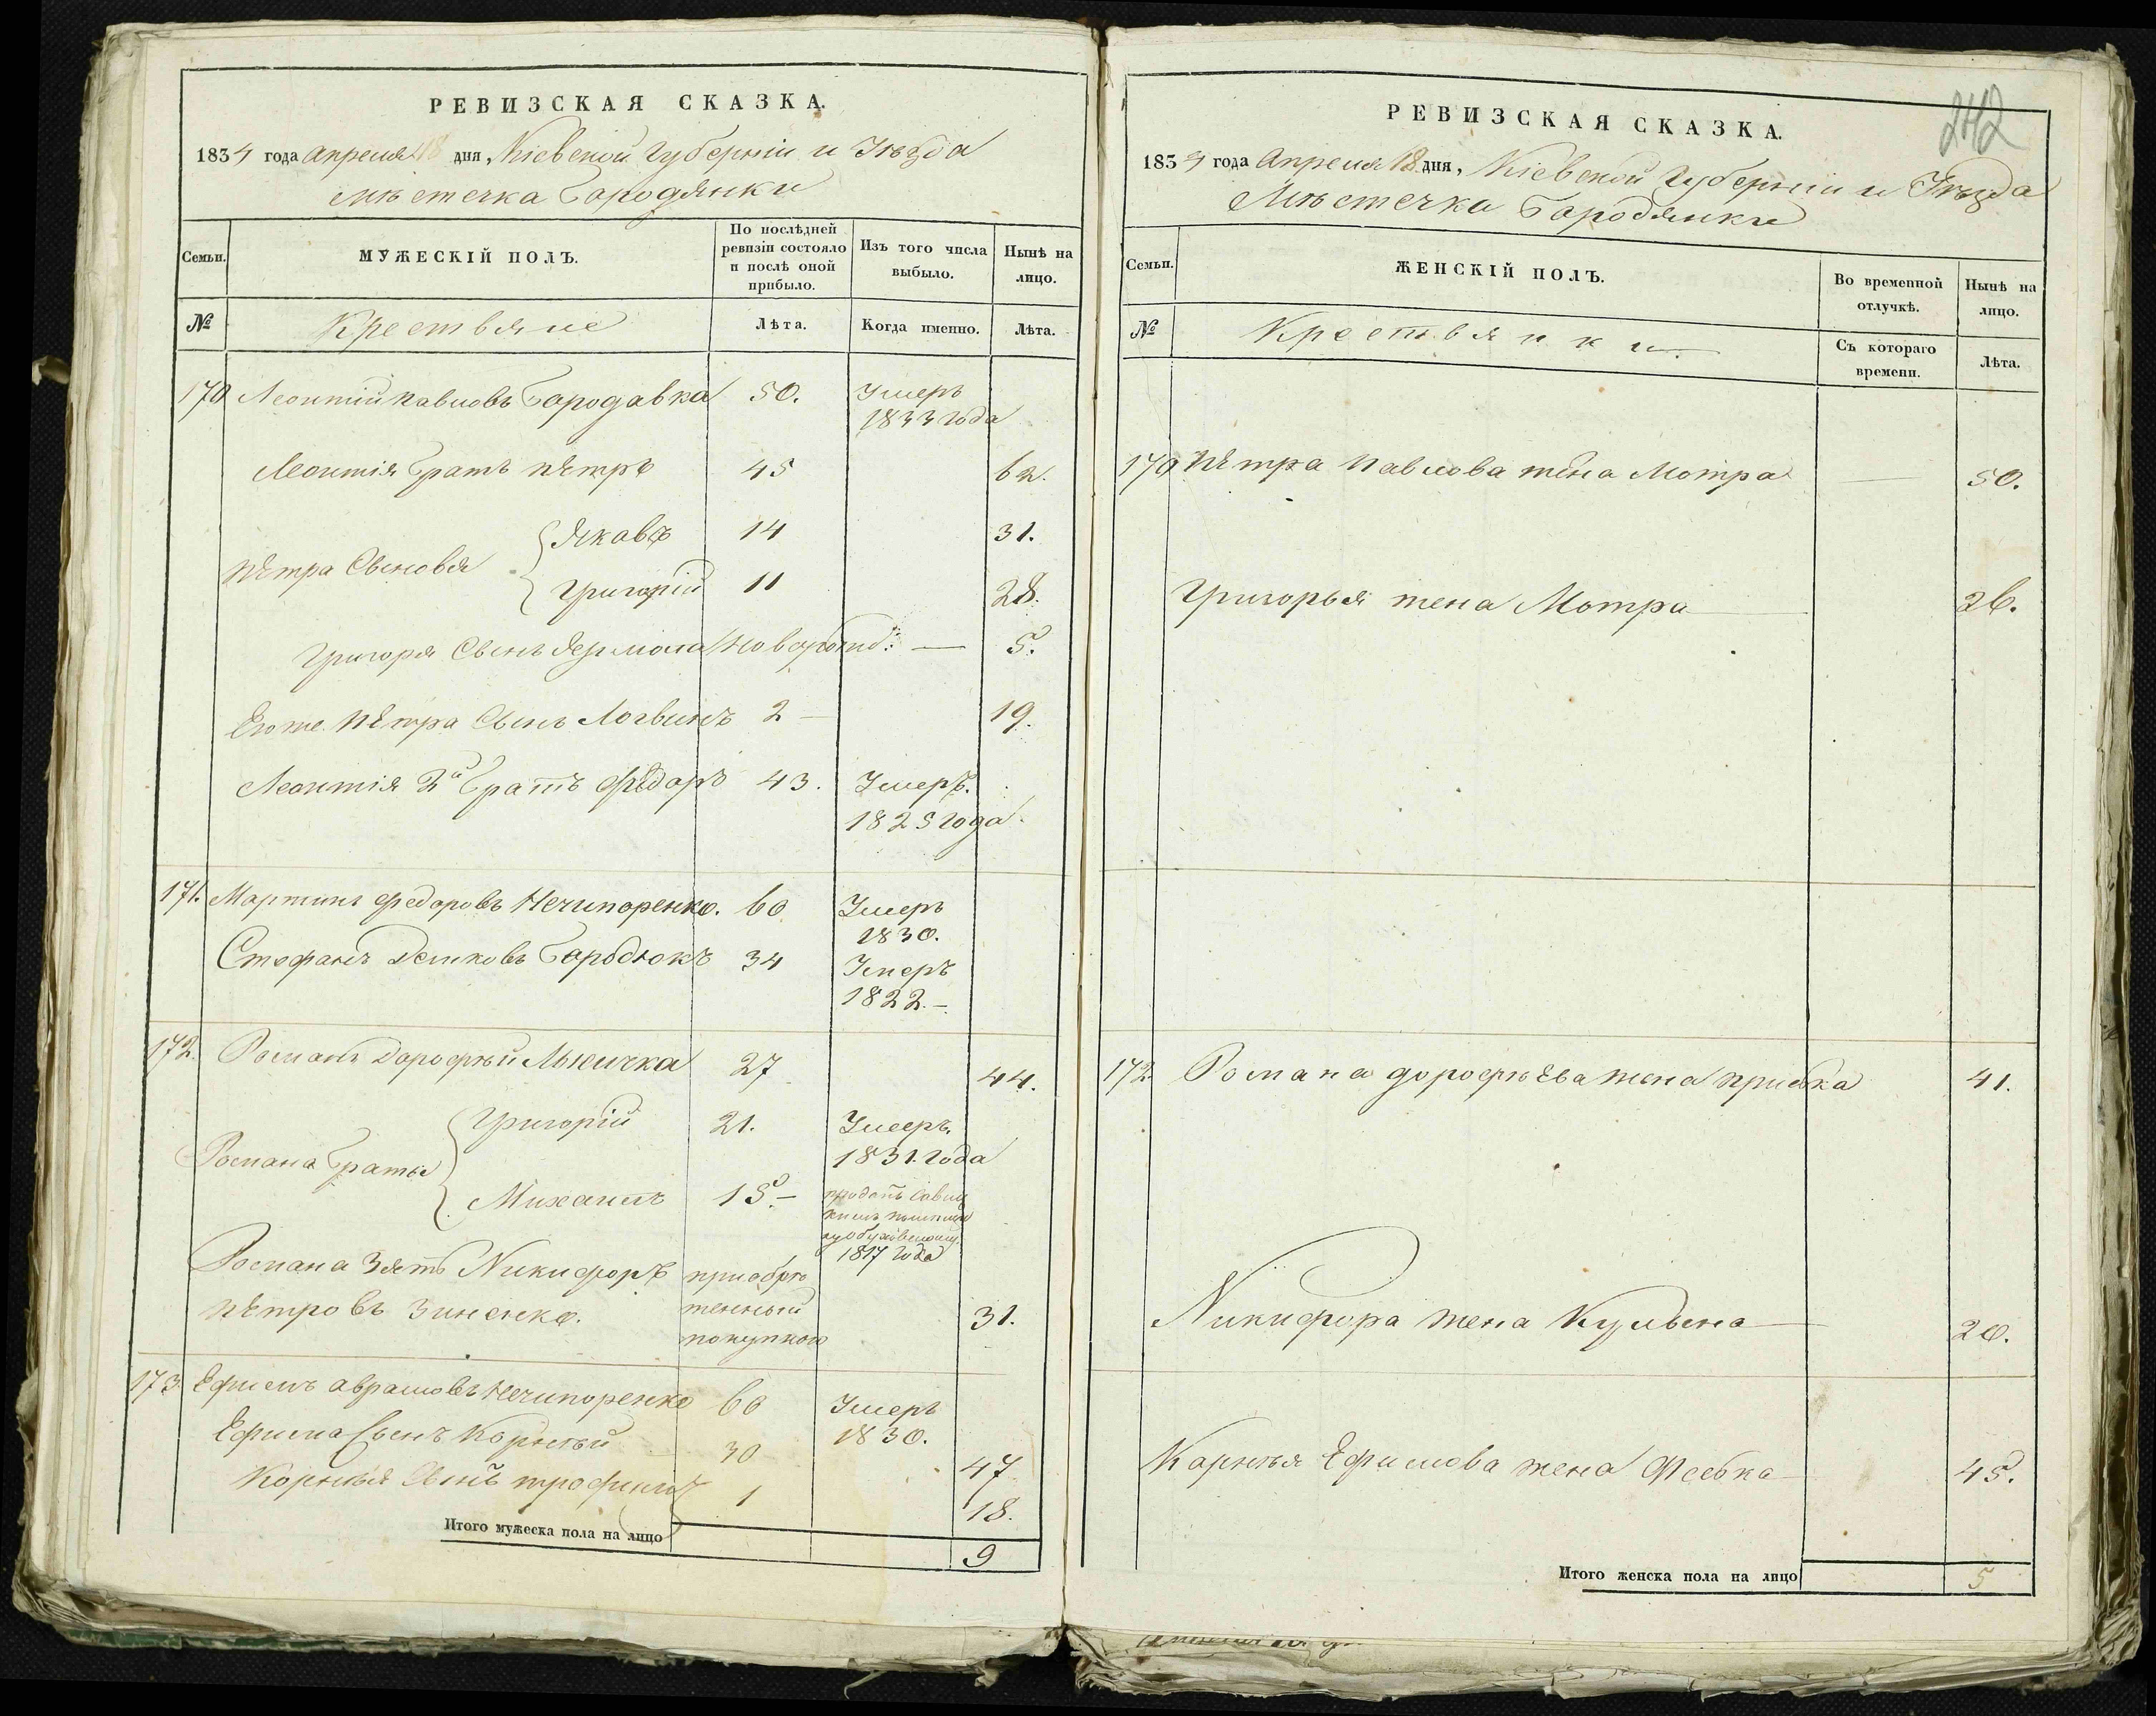 РЕВИЗСКАЯ СКАЗКА.
1834 года апреля 18 дня, Кіевской Губерніи и Уѣзда
мѣстечка Бородянки
Семьи.
МУЖЕСКІЙ ПОЛЪ.
По послѣдней ревизіи состояло и послѣ оной прибыло.
Изъ того числа выбыло.
Нынѣ на лицо.
№
Крестьяне
Лѣта.
Когда именно.
Лѣта.
170 Леонтий павловъ Бородавка 50. Умеръ
1833 года
Леонтія Братъ пѣтръ 45 62.
Пѣтра Сыновья
Яковъ 14 31.
Григорій 11 28.
Григоря Сынъ Ярмола новорожд: — 5.
Егоже Пѣтра Сынъ Логвинъ 2 — 19.
Леонтія 2й Братъ Фѣдоръ 43. Умеръ.
1825 года
171. Мартинъ Федоровъ Нечипоренко. 60 Умеръ
1830.
Стефанъ Бородюкъ 34 Умеръ
1822. —
172. Романъ Дорофѣй 27 44.
Романа Браты
Григорій 21. Умеръ.
1831. года
Михаилъ 15. — проданъ
1817 года
Романа Зять Никифоръ приобрѣ
пѣтровъ Зиненко. тенный 31.
покупкою
173. Ефимъ аврамовъ Нечипоренко 60 Умеръ
1830.
Ефима Сынъ Корнѣй 30 47
Корнѣя Сынъ трофимъ 1 18.
Итого мужеска пола на лицо 9
242
РЕВИЗСКАЯ СКАЗКА.
1834 года Апреля 18 дня, Кіевской Губерніи и Уѣзда
Мѣстечка Бородянки
Семьи.
ЖЕНСКІЙ ПОЛЪ.
Во временной отлучкѣ.
Нынѣ на лицо.
№
Крестьянки.
Съ котораго времени.
Лѣта.
170 Пѣтра Павлова жена Мотра — 50.
Григорья жена Мотра 26.
172. Романа дорофѣева жена приська 41.
Никифора жена Кульина 20.
Корнѣя Ефимова жена Феська 45.
Итого женска пола на лицо 5